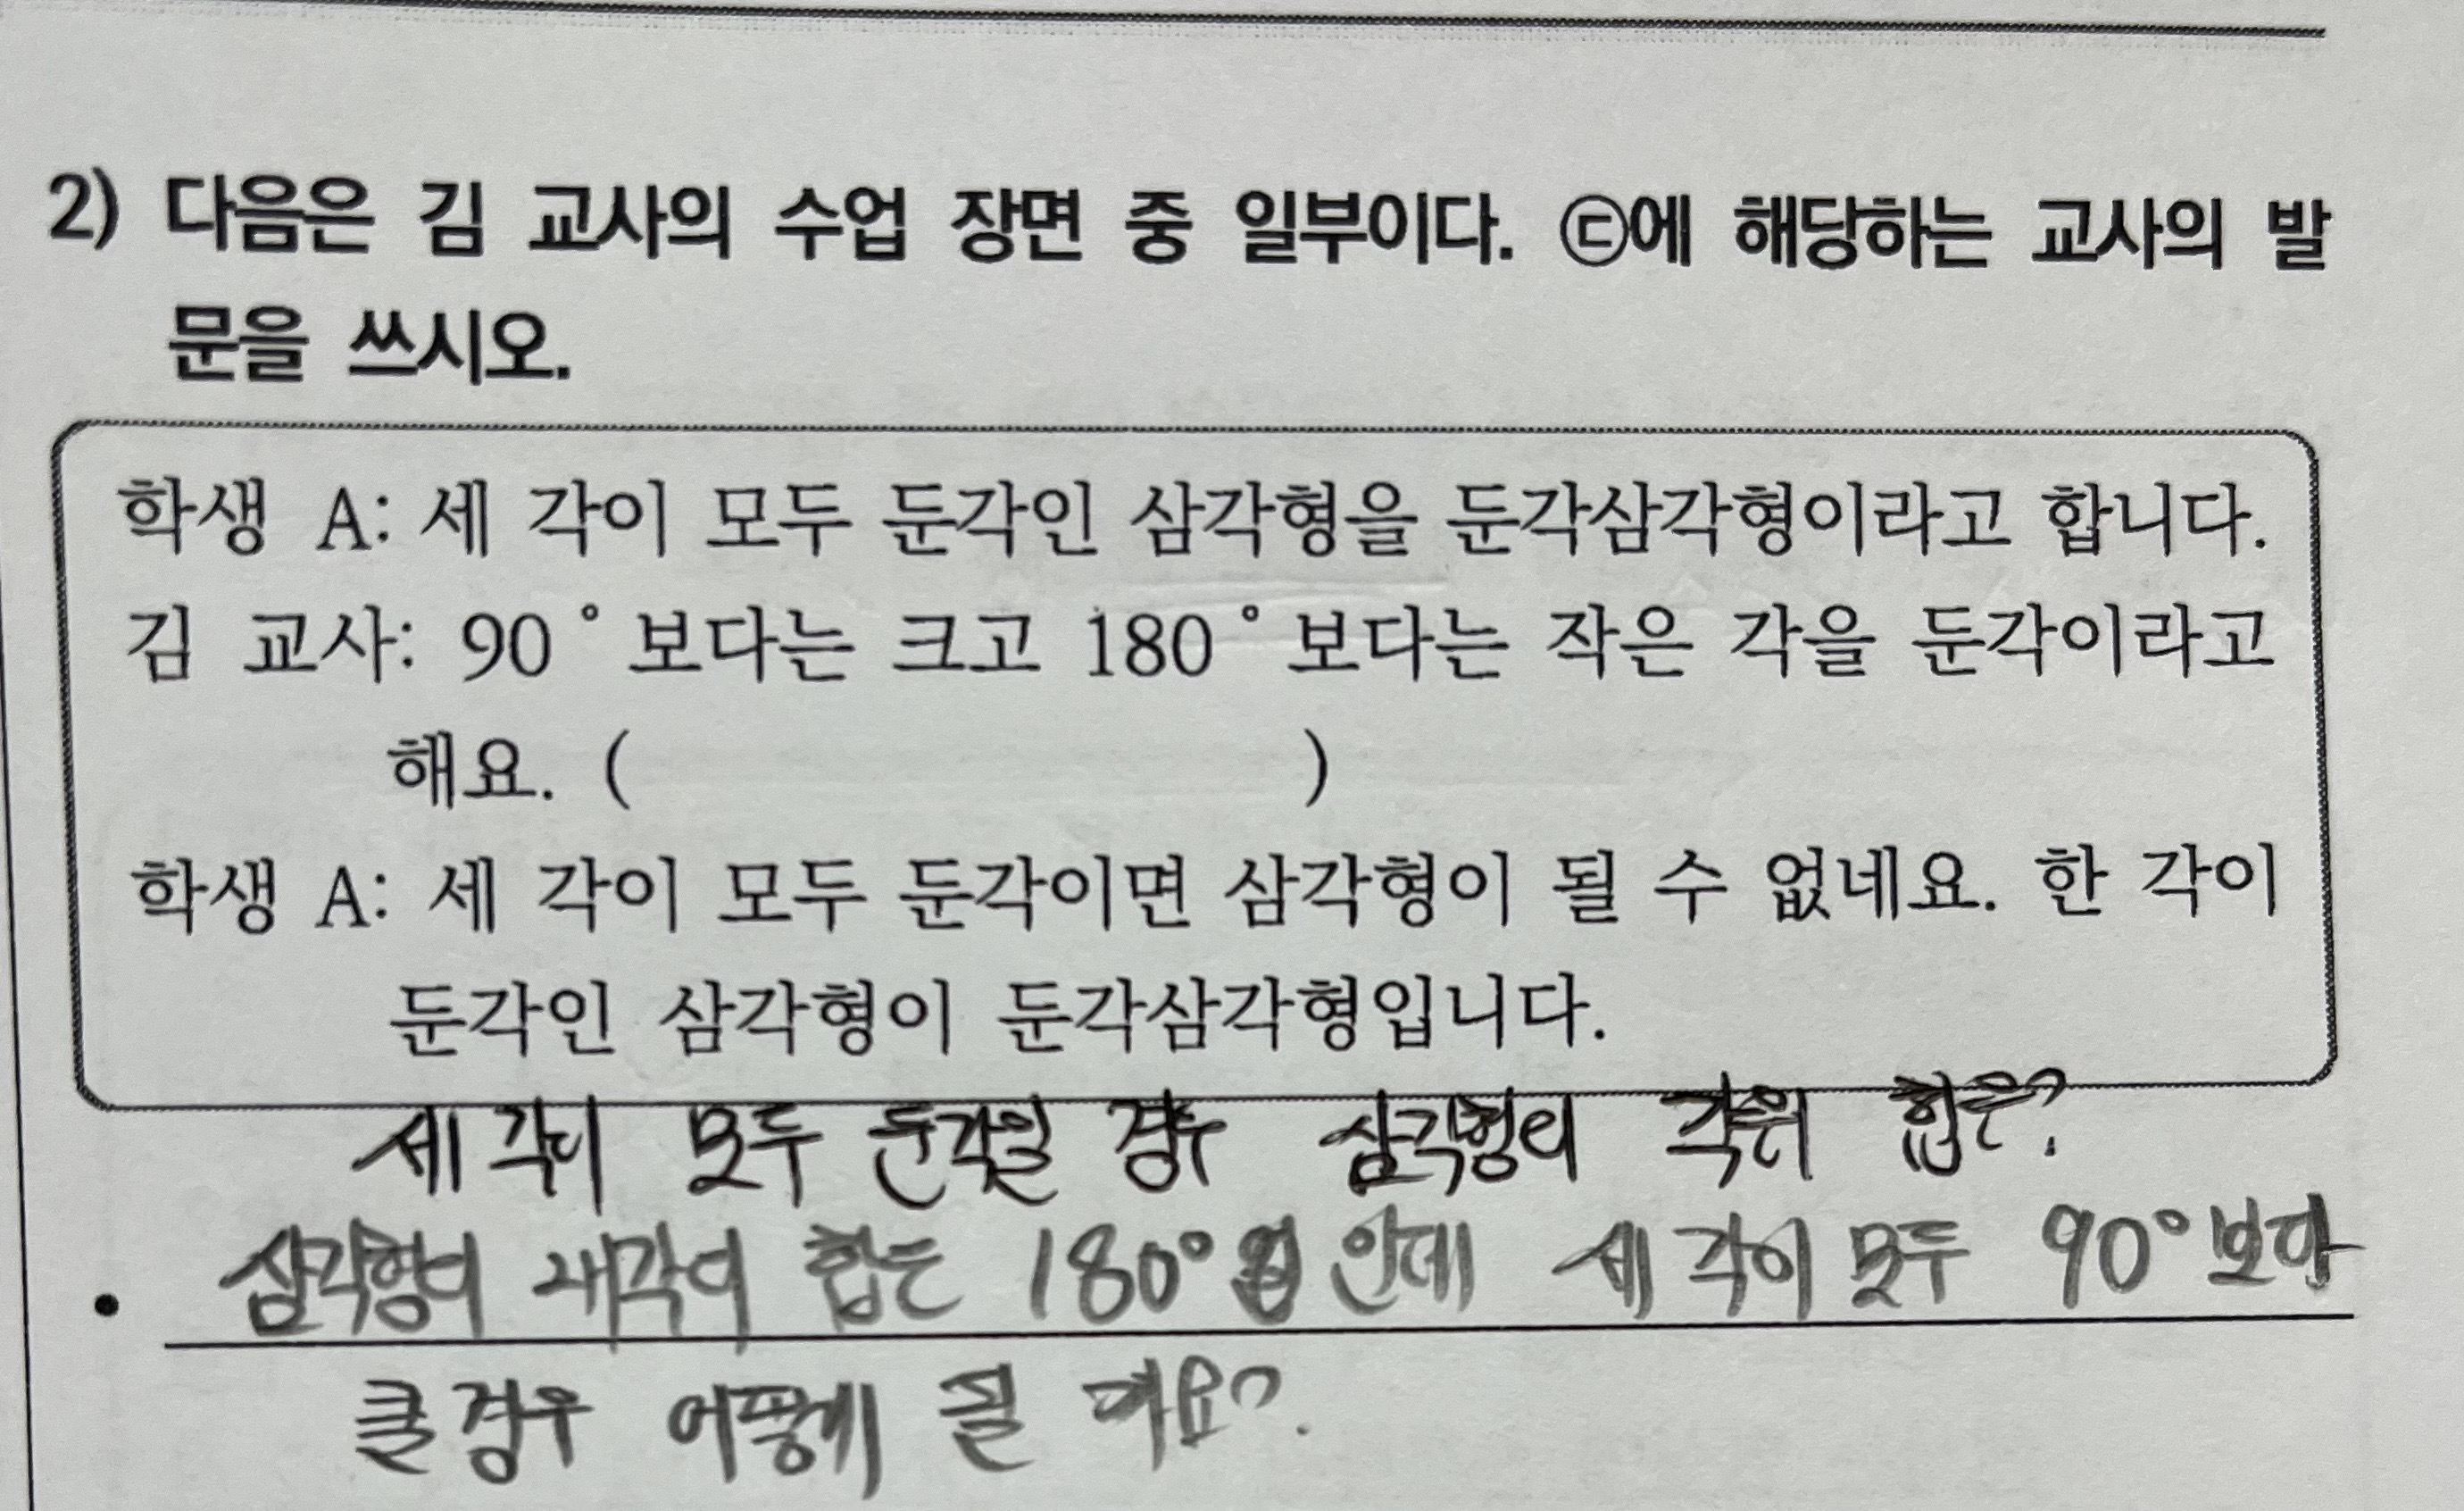 2) 다음은 김 교사의 수업 장면 중 일부이다. ㉢에 해당하는 교사의 발
문을 쓰시오.
학생 A: 세 각이 모두 둔각인 삼각형을 둔각삼각형이라고 합니다.
김 교사: 90°보다는 크고 180°보다는 작은 각을 둔각이라고
해요. ( )
학생 A: 세 각이 모두 둔각이면 삼각형이 될 수 없네요. 한 각이
둔각인 삼각형이 둔각삼각형입니다.
세 각이 모두 둔각일 경우 삼각형의 각의 합은?
• 삼각형의 내각의 합은 180°인데 세 각이 모두 90°보다
클 경우 어떻게 될까요?